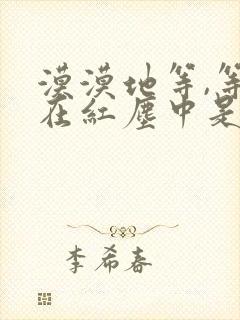 漠漠地等,等
在紅塵中是
李希春